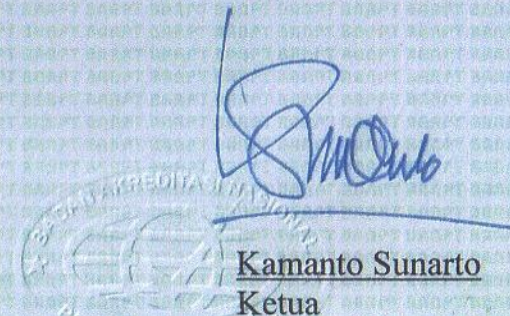 BADAN AKREDITASI NASIONAL
Kamanto Sunarto
Ketua